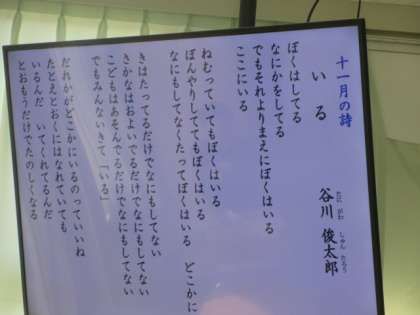 十一月の詩
いる
谷川 俊太郎
たに がわ しゅん たろう
ぼくはしてる
なにかをしてる
でもそれよりまえにぼくはいる
ここにいる
ねむっていてもぼくはいる
ぼんやりしてててもぼくはいる
なにもしてなくたってぼくはいる どこかに
きはたってるだけでなにもしてない
さかなはおよいでるだけでなにもしてない
こどもはあそんでるだけでなにもしてない
でもみんないきて「いる」
だれかがどこかにいるのっていいね
たとえとおくにはなれていても
いるんだ いてくれてるんだ
とおもうだけでたのしくなる